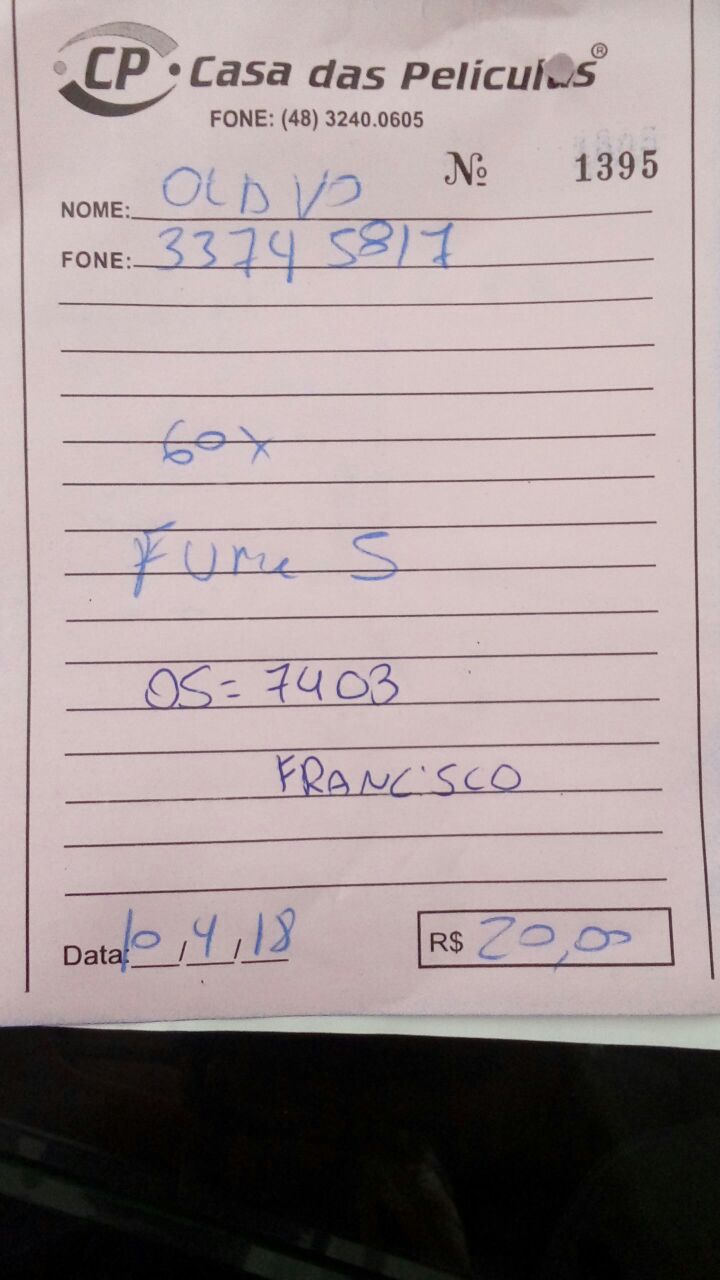 CP Casa das Películas®
FONE: (48) 3240.0605
Nº 1395
NOME: OLD VO
FONE: 3374 5817
60x
Fume 5
OS= 7403
FRANCISCO
Data: 10/4/18 R$ 20,00